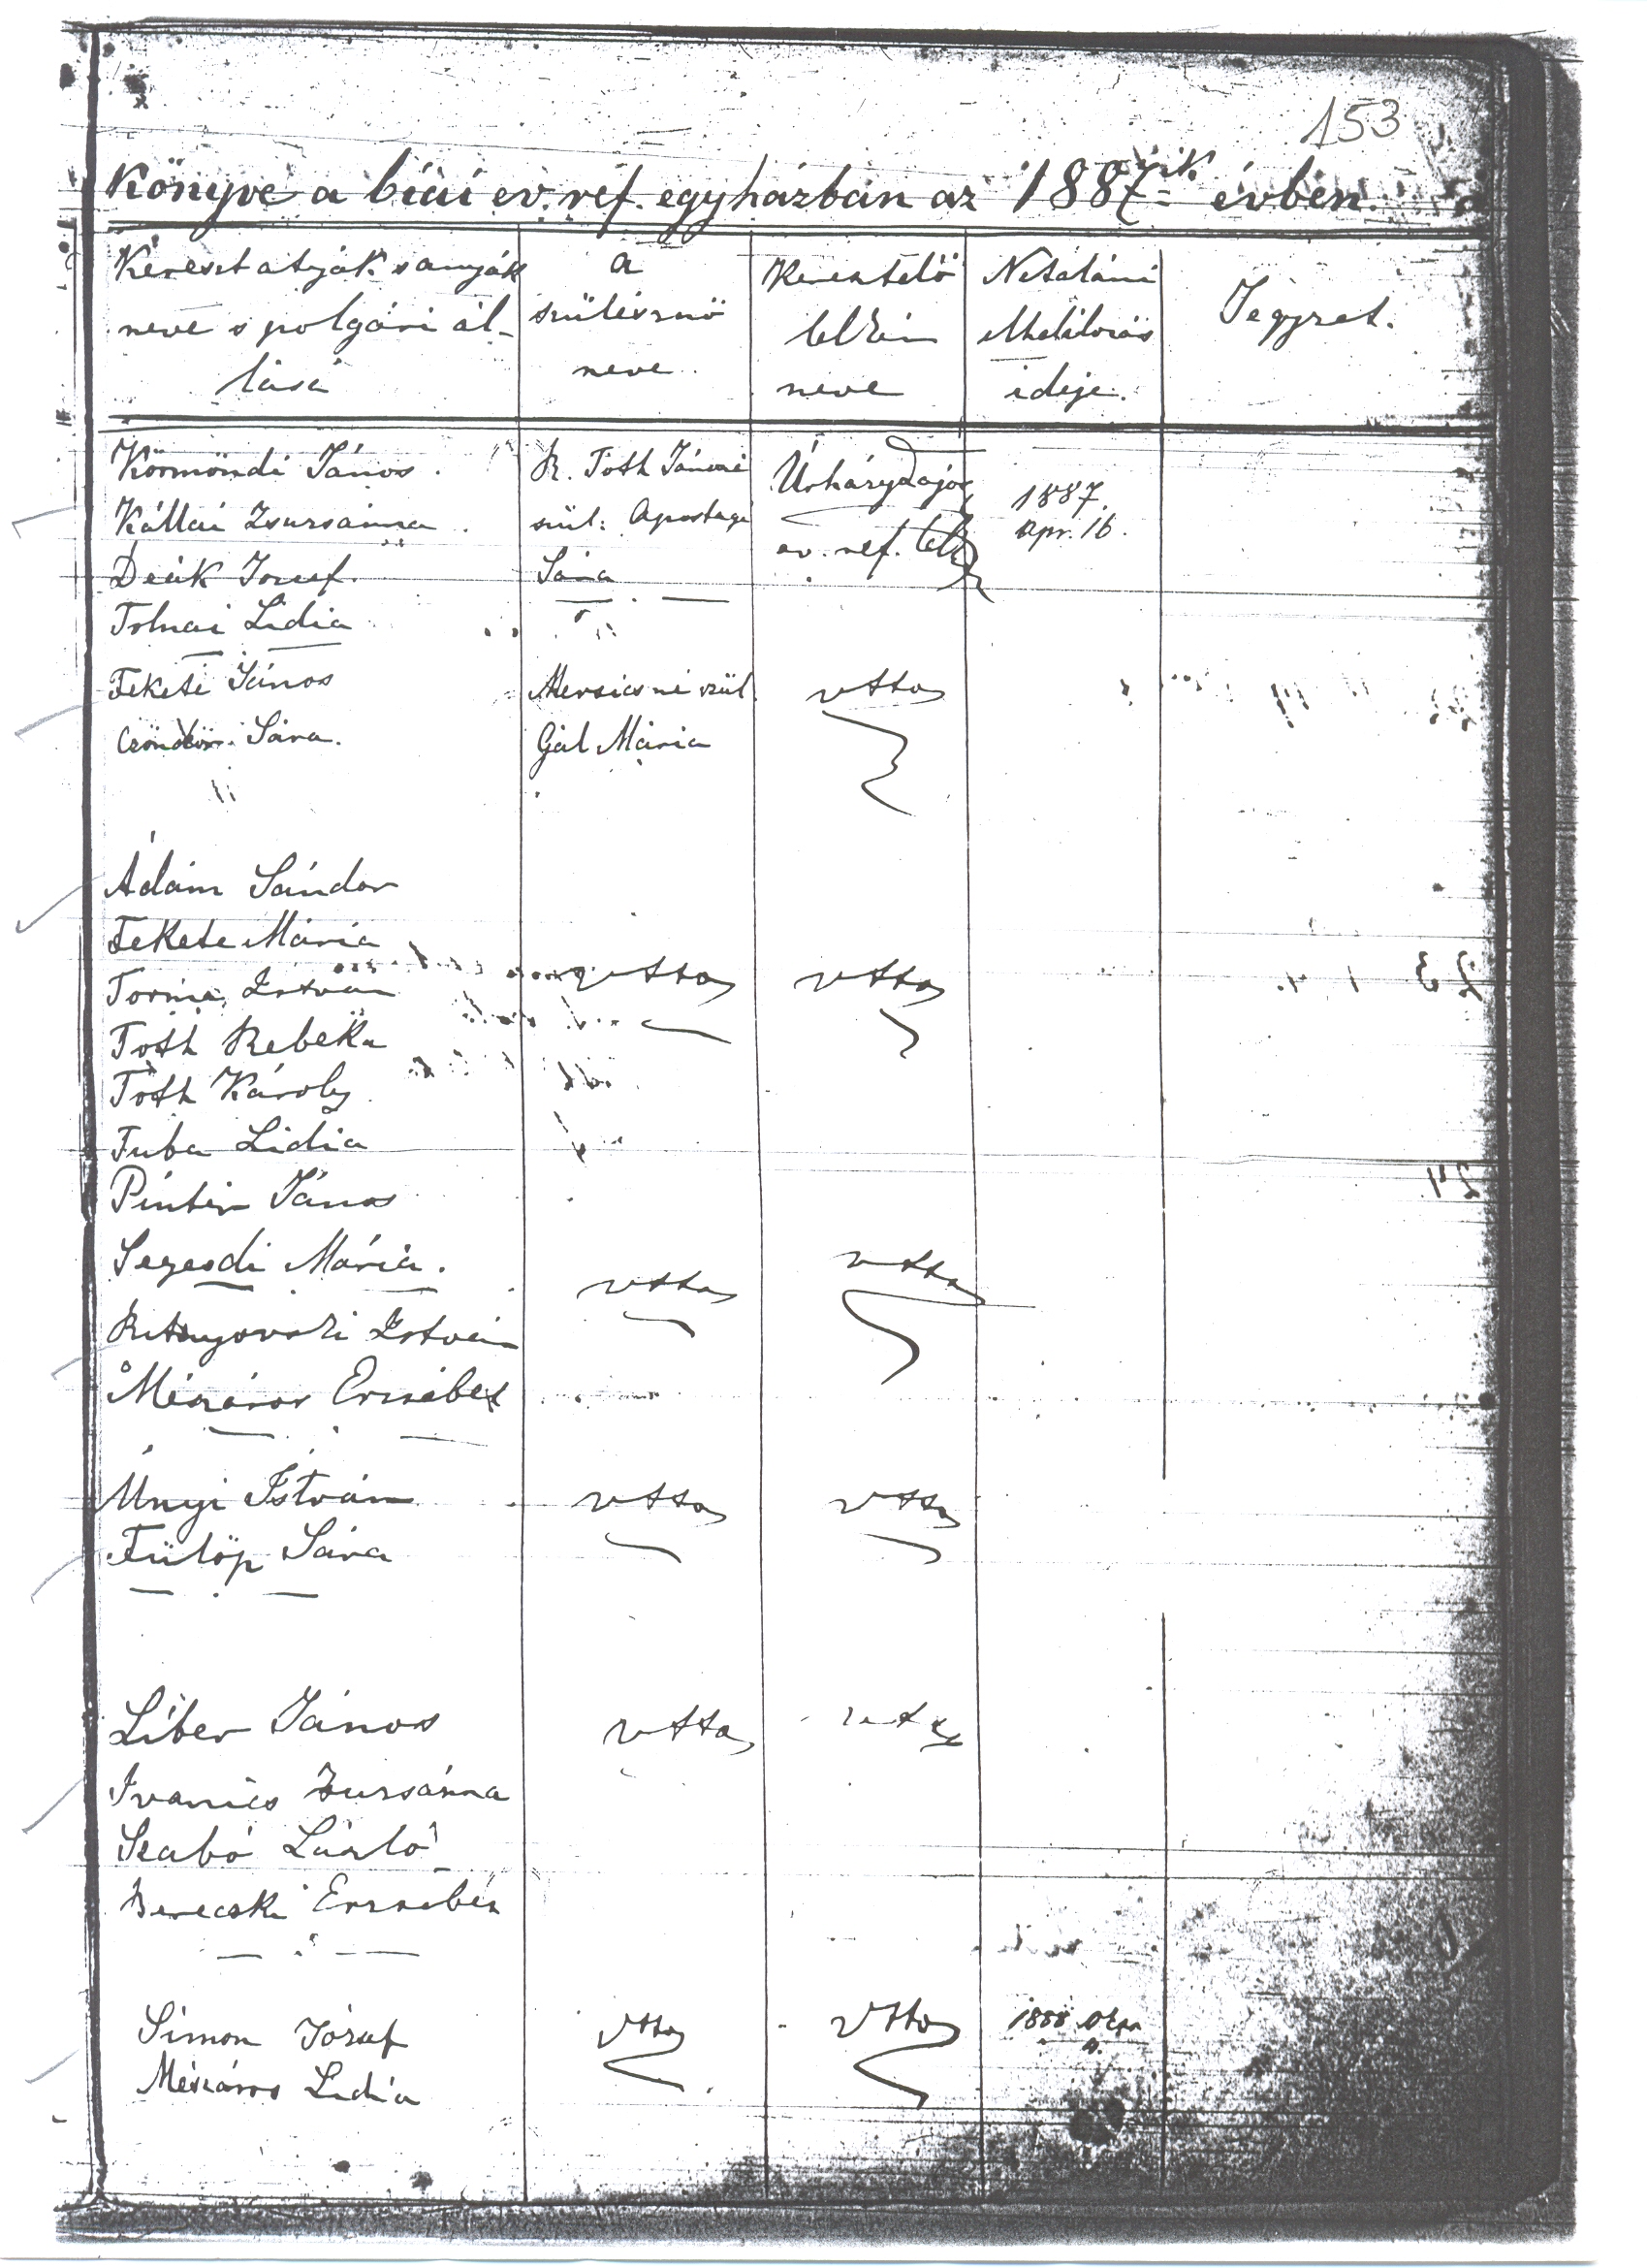 153
Könyve a biai ev. ref. egyházban az 1887-ik évben.
Kereszt atyák s anyák
neve s polgári ál-
lása
a
szülésznő
neve
Keresztelő
lelkész
neve
Netaláni
Meghalálozás
ideje.
Jegyzet.
Körmöndi János.
Kállai Zsuzsánna.
Deák József.
Tolnai Lidia
R. Tóth Jánosné
szül: Apostagi
Sára
ev. ref. lelk
1887.
apr. 16.
Fekete János
Czöndör Sára.
Mersicsné szül.
Gál Mária
vtta
Ádám Sándor
Fekete Mária
Torma István
Tóth Rebeka
Tóth Károly
Tuba Lidia
Pintér János
Szegedi Mária.
vtta
vtta
vtta
vtta
István
Mészáros Erzsébet
Unyi István
Fülöp Sára
vtta
vtta
Liber János
Ivanics Zsuzsánna
Szabó László
Berecski Erzsébet
vtta
vtta
Simon József
Mészáros Lidia
vtta
vtta
1888